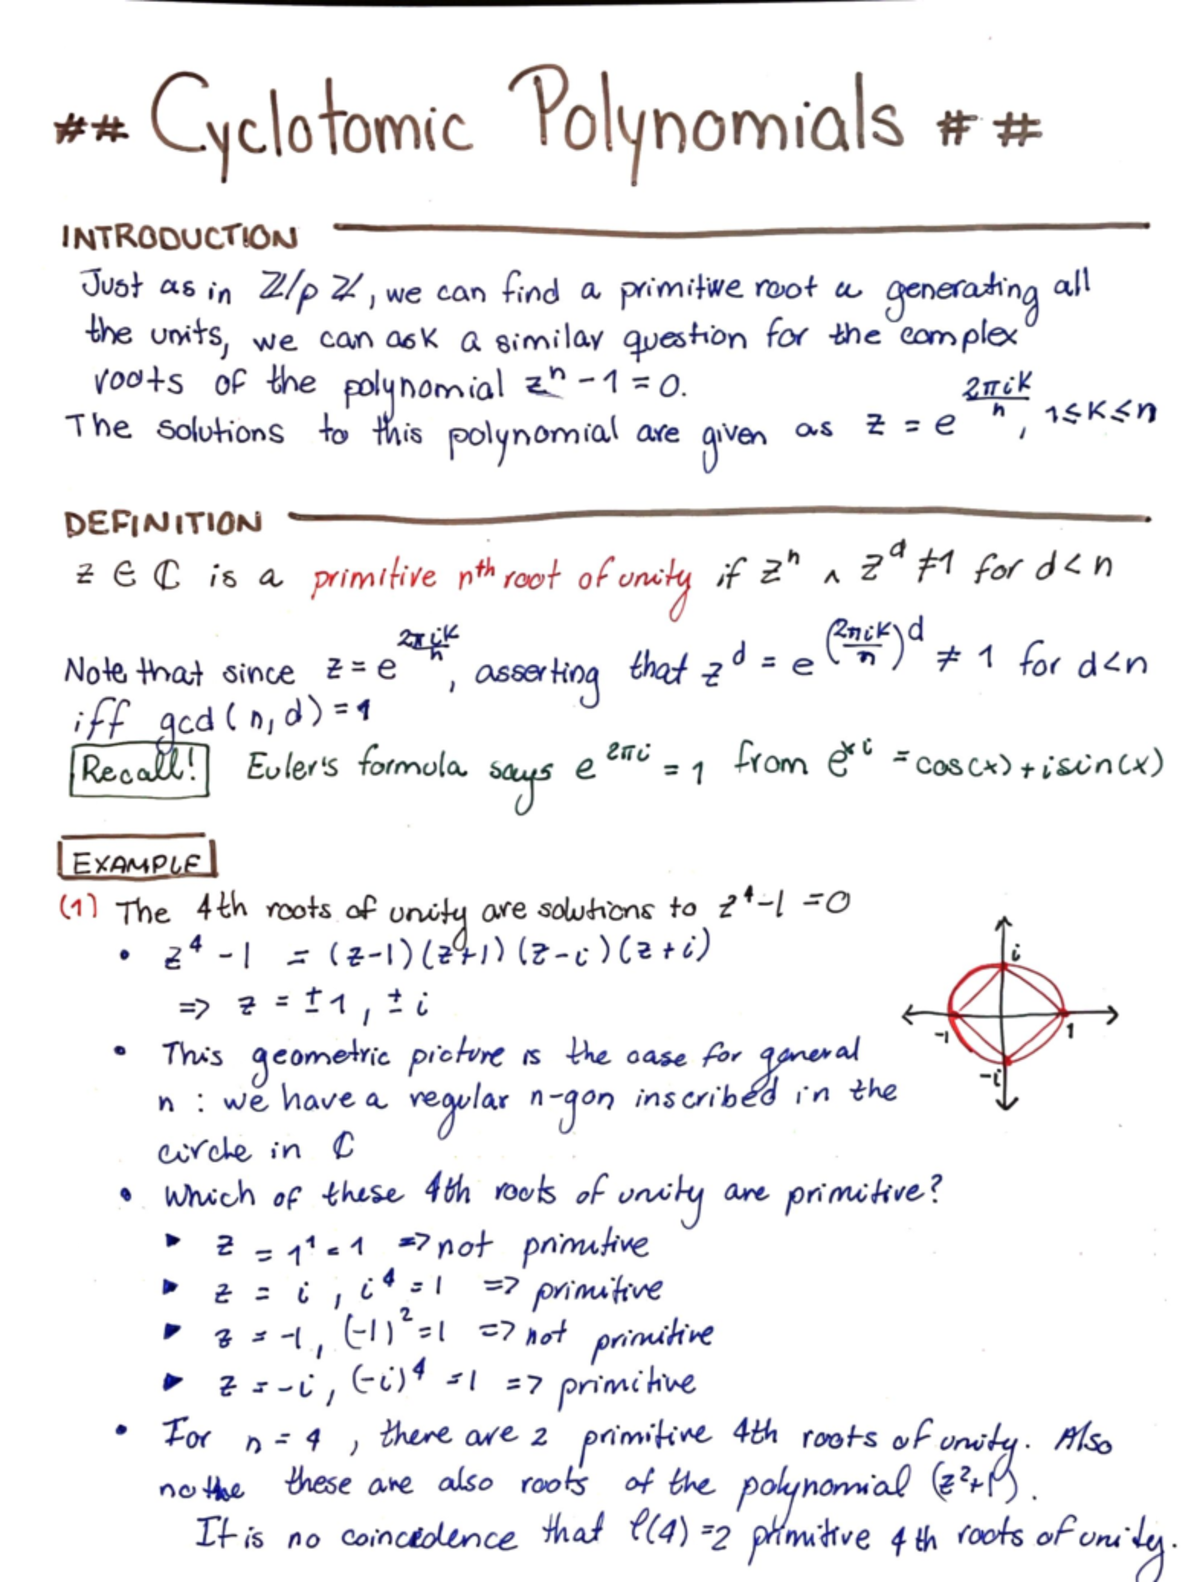 ## Cyclotomic Polynomials ##
INTRODUCTION
Just as in ℤ/pℤ, we can find a primitive root u generating all
the units, we can ask a similar question for the complex
roots of the polynomial zⁿ - 1 = 0.
The solutions to this polynomial are given as z = e^(2πik/n), 1≤k≤n
DEFINITION
z ∈ ℂ is a primitive nth root of unity if zⁿ ∧ z^d ≠ 1 for d < n
Note that since z = e^(2πik/n), asserting that z^d = e^(2πik/n)^d ≠ 1 for d<n
iff gcd(n,d) = 1
Recall! Euler's formula says e^(2πi) = 1 from e^(xi) = cos(x) + isin(x)
EXAMPLE
(1) The 4th roots of unity are solutions to z⁴-1 = 0
• z⁴ - 1 = (z-1)(z+1)(z-i)(z+i)
=> z = ±1, ±i
• This geometric picture is the case for general
n : we have a regular n-gon inscribed in the
circle in ℂ
i
-1
1
-i
• Which of these 4th roots of unity are primitive?
▸ z = 1¹ = 1 => not primitive
▸ z = i, i⁴ = 1 => primitive
▸ z = -1, (-1)² = 1 => not primitive
▸ z = -i, (-i)⁴ = 1 => primitive
• For n = 4, there are 2 primitive 4th roots of unity. Also
note these are also roots of the polynomial (z²+1).
It is no coincidence that φ(4) = 2 primitive 4th roots of unity.